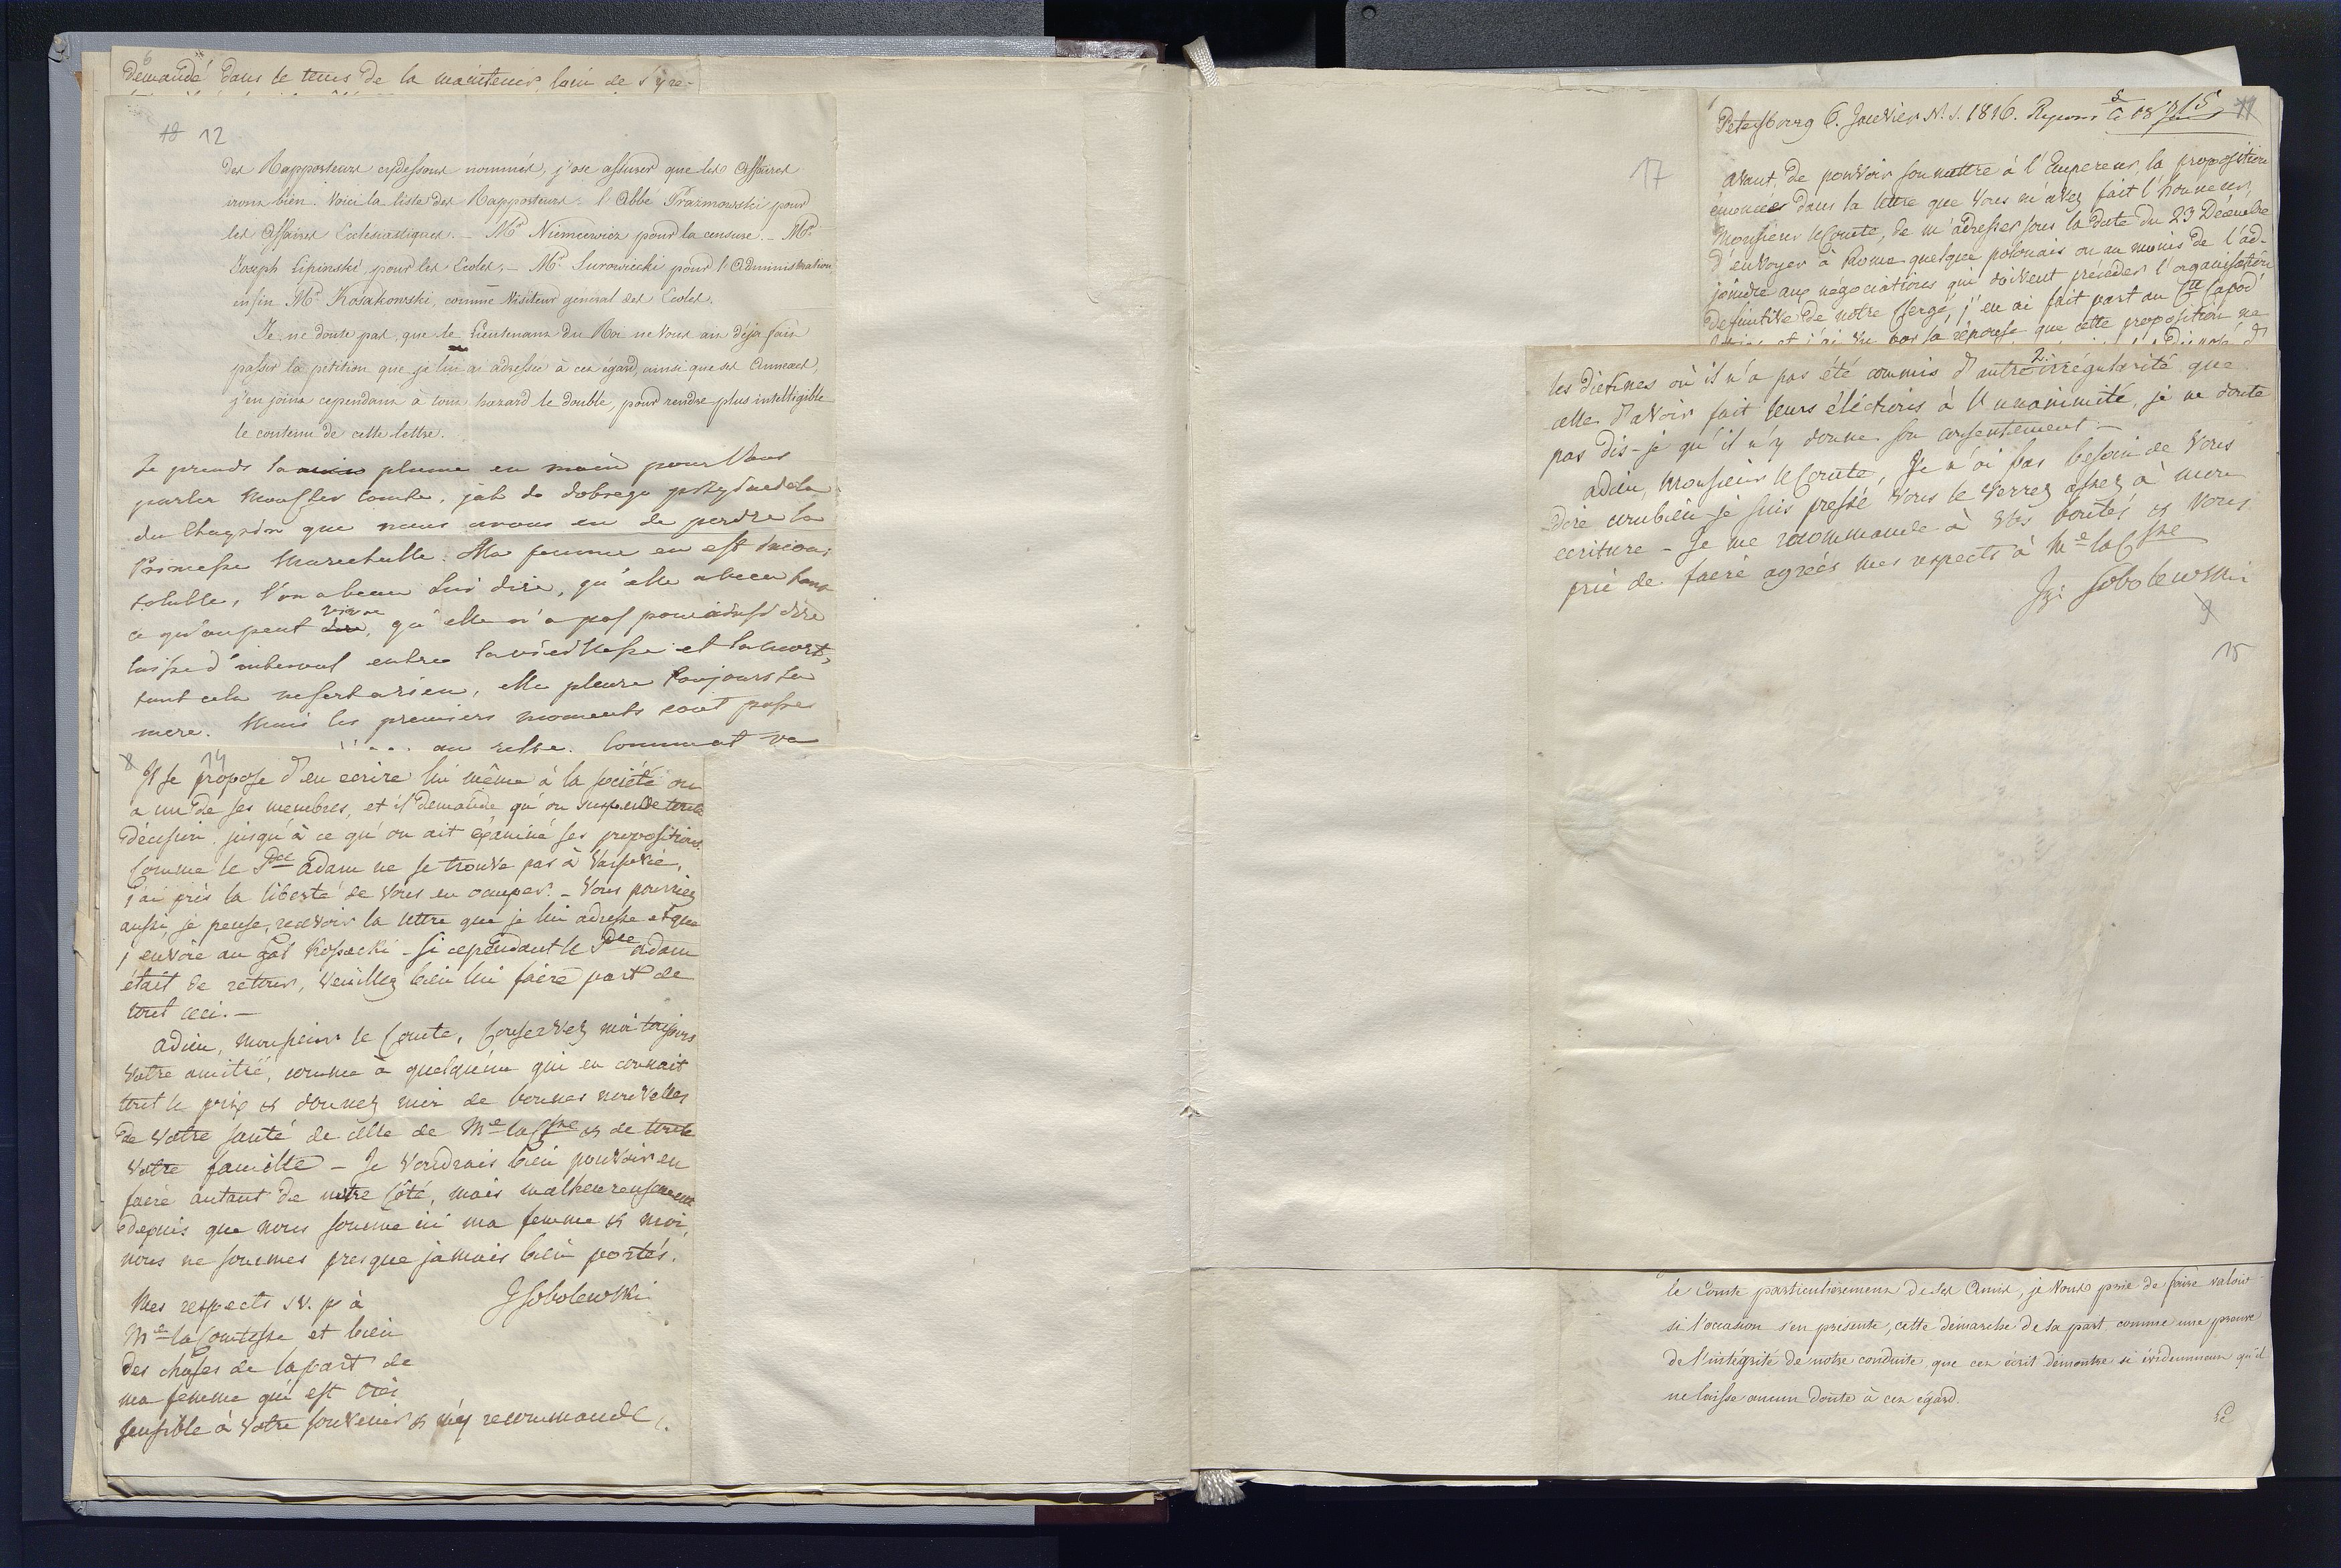 6
demandé dans le tems de la maintenir, loin de s'y re-
10 12
des Rapporteurs cydessous nommés, j'ose assurer que les affaires
irons bien. Voici la liste des Rapporteurs. l'Abbé Prazmowski pour
les Affaires Ecclesiastiques. — Mr Niemcewicz pour la censure. — Mr
Joseph Lipinski, pour les Ecoles, — Mr Surowiecki pour l'Administration
enfin Mr Kosakowski, comme Visiteur general des Ecoles.
Je ne doute pas, que le Lieutenant du Roi ne Vous ait déja fait
passer la petition que je lui ai adressée à cet égard, ainsi que ses Annexes,
j'en joins cependant à tout hazard le double, pour rendre plus intelligible
le contenu de cette lettre.
Je prends la plume en main pour Vous
parler Monsieur Comte, jak do dobrego
du Chagrin que nous avons eu de perdre la
Princesse Marechalle. Ma femme en est incon-
soluble, l'on a beau lui dire, qu'elle a vecu tout
ce qu'on peut vivre, qu'elle n'a pas pour ainsi dire
laissé d'interval entre la vieillesse et la mort,
tout cela ne sert a rien, elle pleure toujours sa
mere. Mais les premiers moments sont passés
au reste. Comment va
8 14
Il se propose d'en ecrire lui même à la société ou
a un de ses membres, et il demande qu'on suspende toute
décision jusqu'à ce qu'on ait éxaminé ses propositions.
Comme le Pce Adam ne se trouve pas à Varsovie,
j'ai pris la liberté de Vous en occuper. — Vous pourriez
aussi, je pense, recevoir la lettre que je lui adresse et que
j'envoie au Gal Kossecki — si cependant le Pce Adam
était de retour, Veuillez bien lui faire part de
tout ceci. —
Adieu, Monsieur le Comte, Conservez moi toujours
Votre amitié, comme à quelqu'un qui en connait
tout le prix & donnez moi de bonnes nouvelles
de Votre santé de celle de Me la Csse & de toute
Votre famille — Je Voudrais bien pouvoir en
faire autant de notre côté, mais malheureusement
depuis que nous somme ici ma femme & moi,
nous ne sommes presque jamais bien portés.
JSobolewski
Mes respects s.v. p à
Me la Comtesse et bien
des choses de la part de
ma femme qui est très
sensible à Votre souvenir & s'y recommande
17
Petersbourg 6. Janvier N. S. 1816. 11
Avant de pouvoir soumettre à l'Empereur, la proposition
énoncée dans la lettre que Vous m'avez fait l'honneur,
Monsieur le Comte, de m'adresser sous la date du 23 Décembre
d'envoyer à Rome quelque polonais ou au moins de l'ad-
joindre aux négociations qui doivent précéder l'organisation
definitive de notre Clergé, j'en ai fait part au Cte Capod'
et j'ai vu par sa réponse que cette proposition ne
2.
les diétines où il n'a pas été commis d'autre irrégularité que
celle d'avoir fait leurs élections à l'unanimité, je ne doute
pas dis-je qu'il n'y donne son consentement. —
Adieu, Monsieur le Comte, Je n'ai pas besoin de Vous
dire combien je suis pressé Vous le Verrez assez à mon
ecriture — Je me recommande à Vos bontés & Vous
prie de faire agréer mes respects à Me la Csse
Sobolewski
9
15
le Comte particulierement de ses Amis, je Vous prie de faire valoir
si l'occasion s'en présente, cette démarche de sa part comme une preuve
de l'intégrité de notre conduite, que cet écrit démontre si évidemment qu'il
ne laisse aucun doute à cet égard.